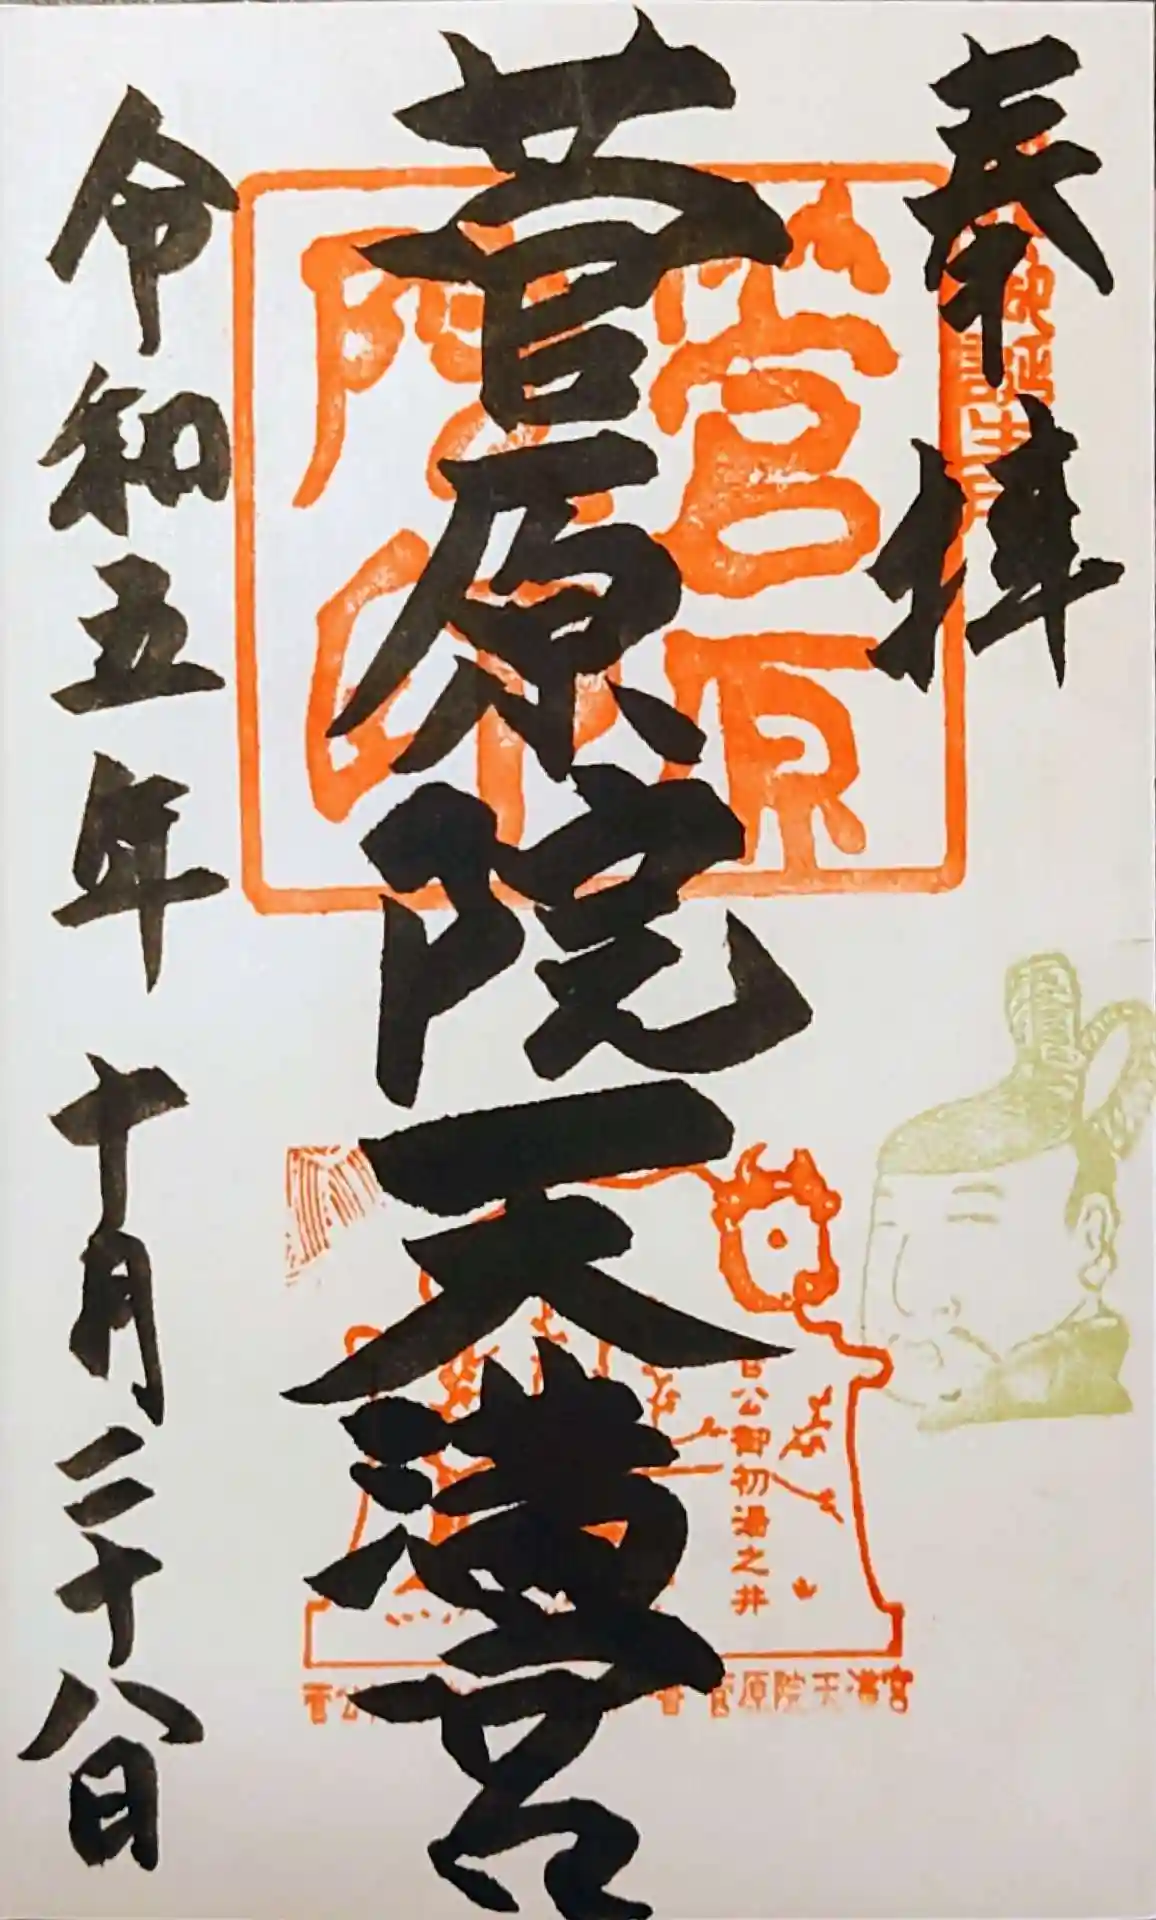 奉拝
菅原院天満宮
令和五年十月二十八日
菅原院印
菅公御初湯之井
菅原院天満宮